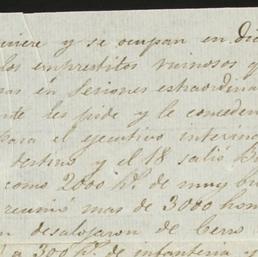 quiere y se ocupan en di
los emprestitos ruinosos y
mas en seciones estraordina
nte les pide y le conceden
para el ejecutivo interino
destino y el 18 salió D
como 2000 h.s de muy bu
reunió mas de 3000 hom
n desalojaron de Cerro
á 300 h.s de infanteria y